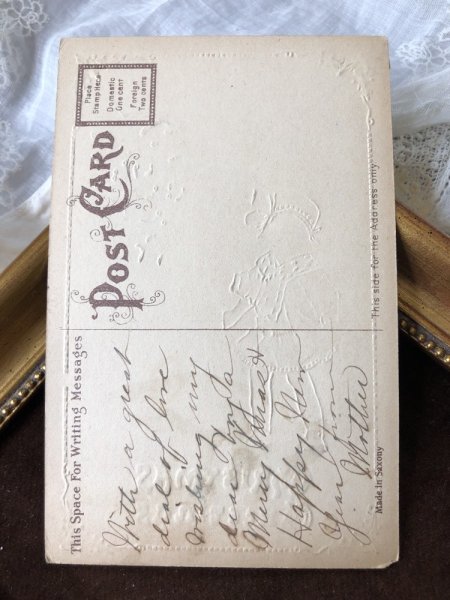 Place
Stamp Here
Domestic
One cent
Foreign
Two cents
POST CARD
This Space For Writing Messages
This side for the Address only.
With a great
deal of love
wishing my
dear
Merry Xmas &
Happy New
Year from
Mother
Made in Saxony